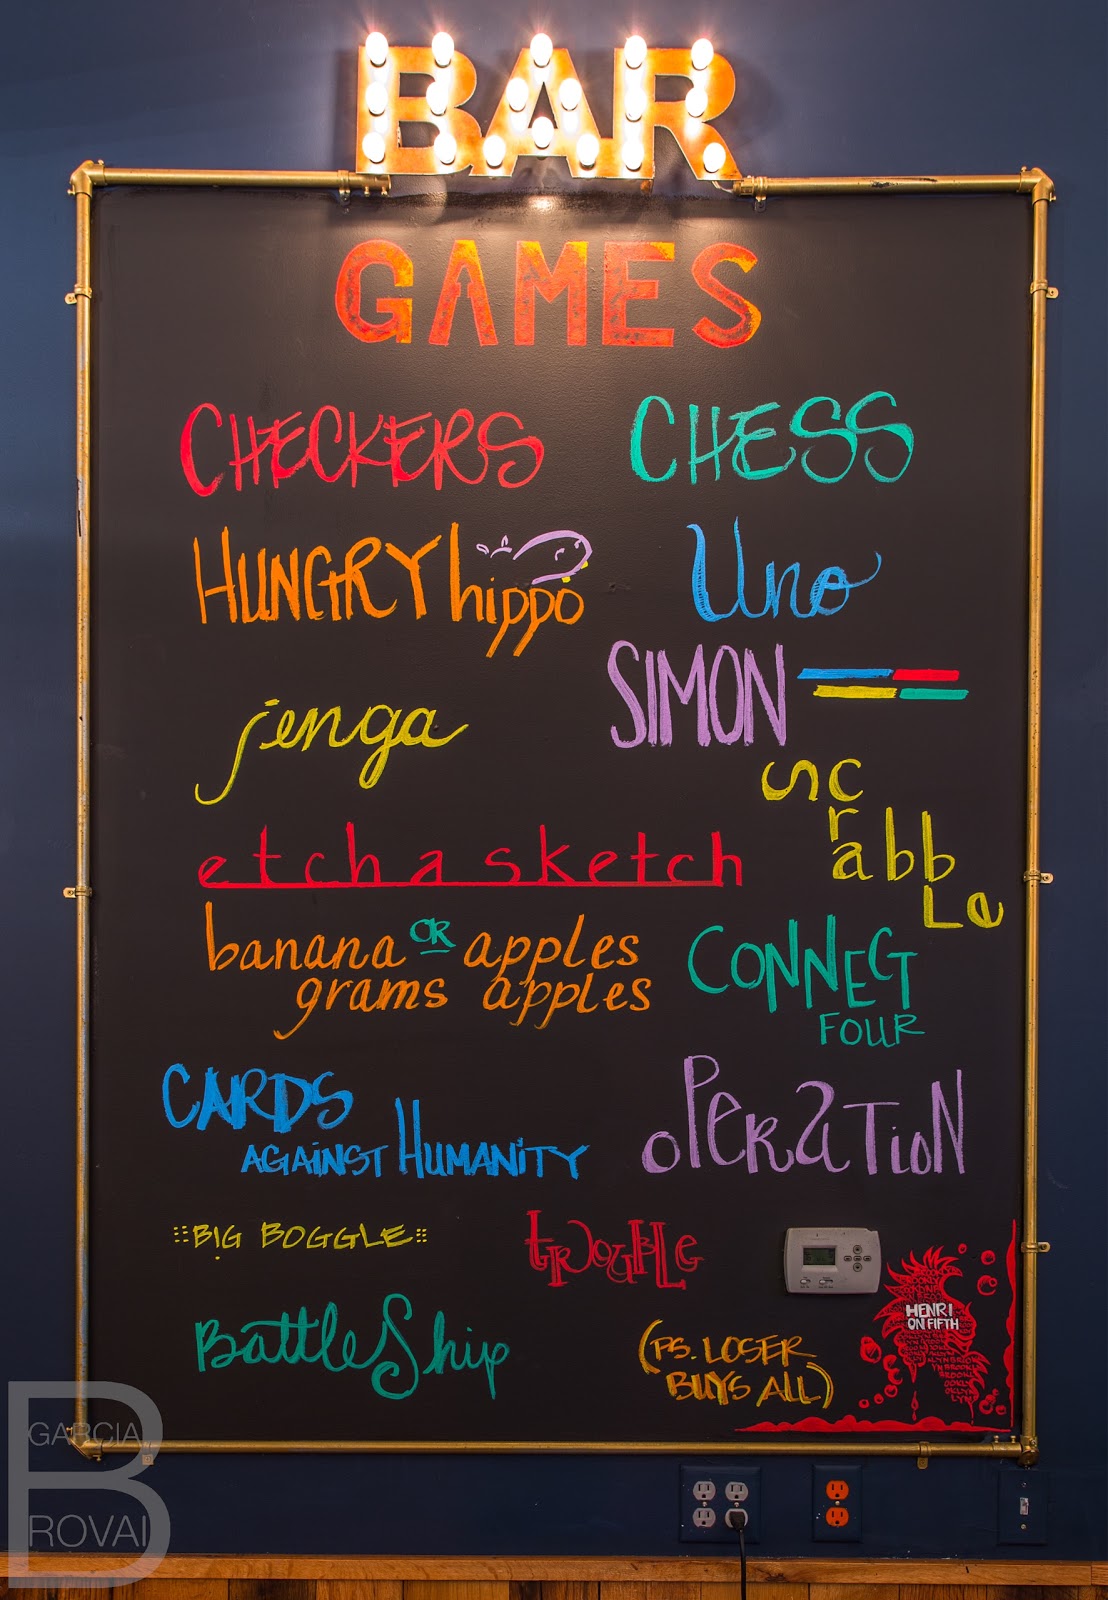 BAR
GAMES
CHECKERS
CHESS
HUNGRY hippo
Uno
SIMON
jenga
Scrabble
etch a sketch
banana OR apples
grams apples
CONNECT
FOUR
CARDS
AGAINST HUMANITY
OPERATION
BIG BOGGLE
TROUBLE
BattleShip
(PS. LOSER
BUYS ALL)
HENRI
ON FIFTH
B
GARCIA
ROVAI